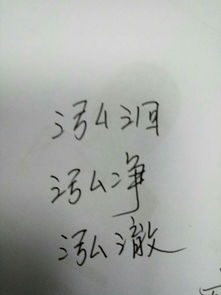 泓洄
泓净
泓澈